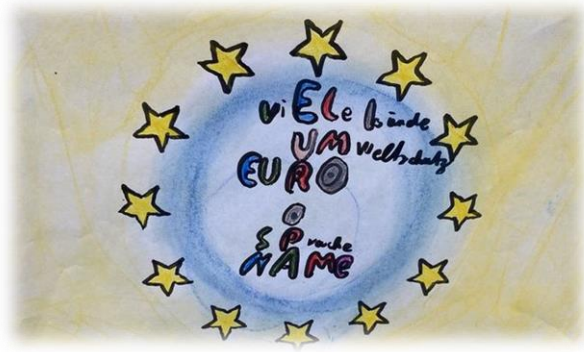 viELe
UMweltschutz
EURO
O
SPrache
NAMe